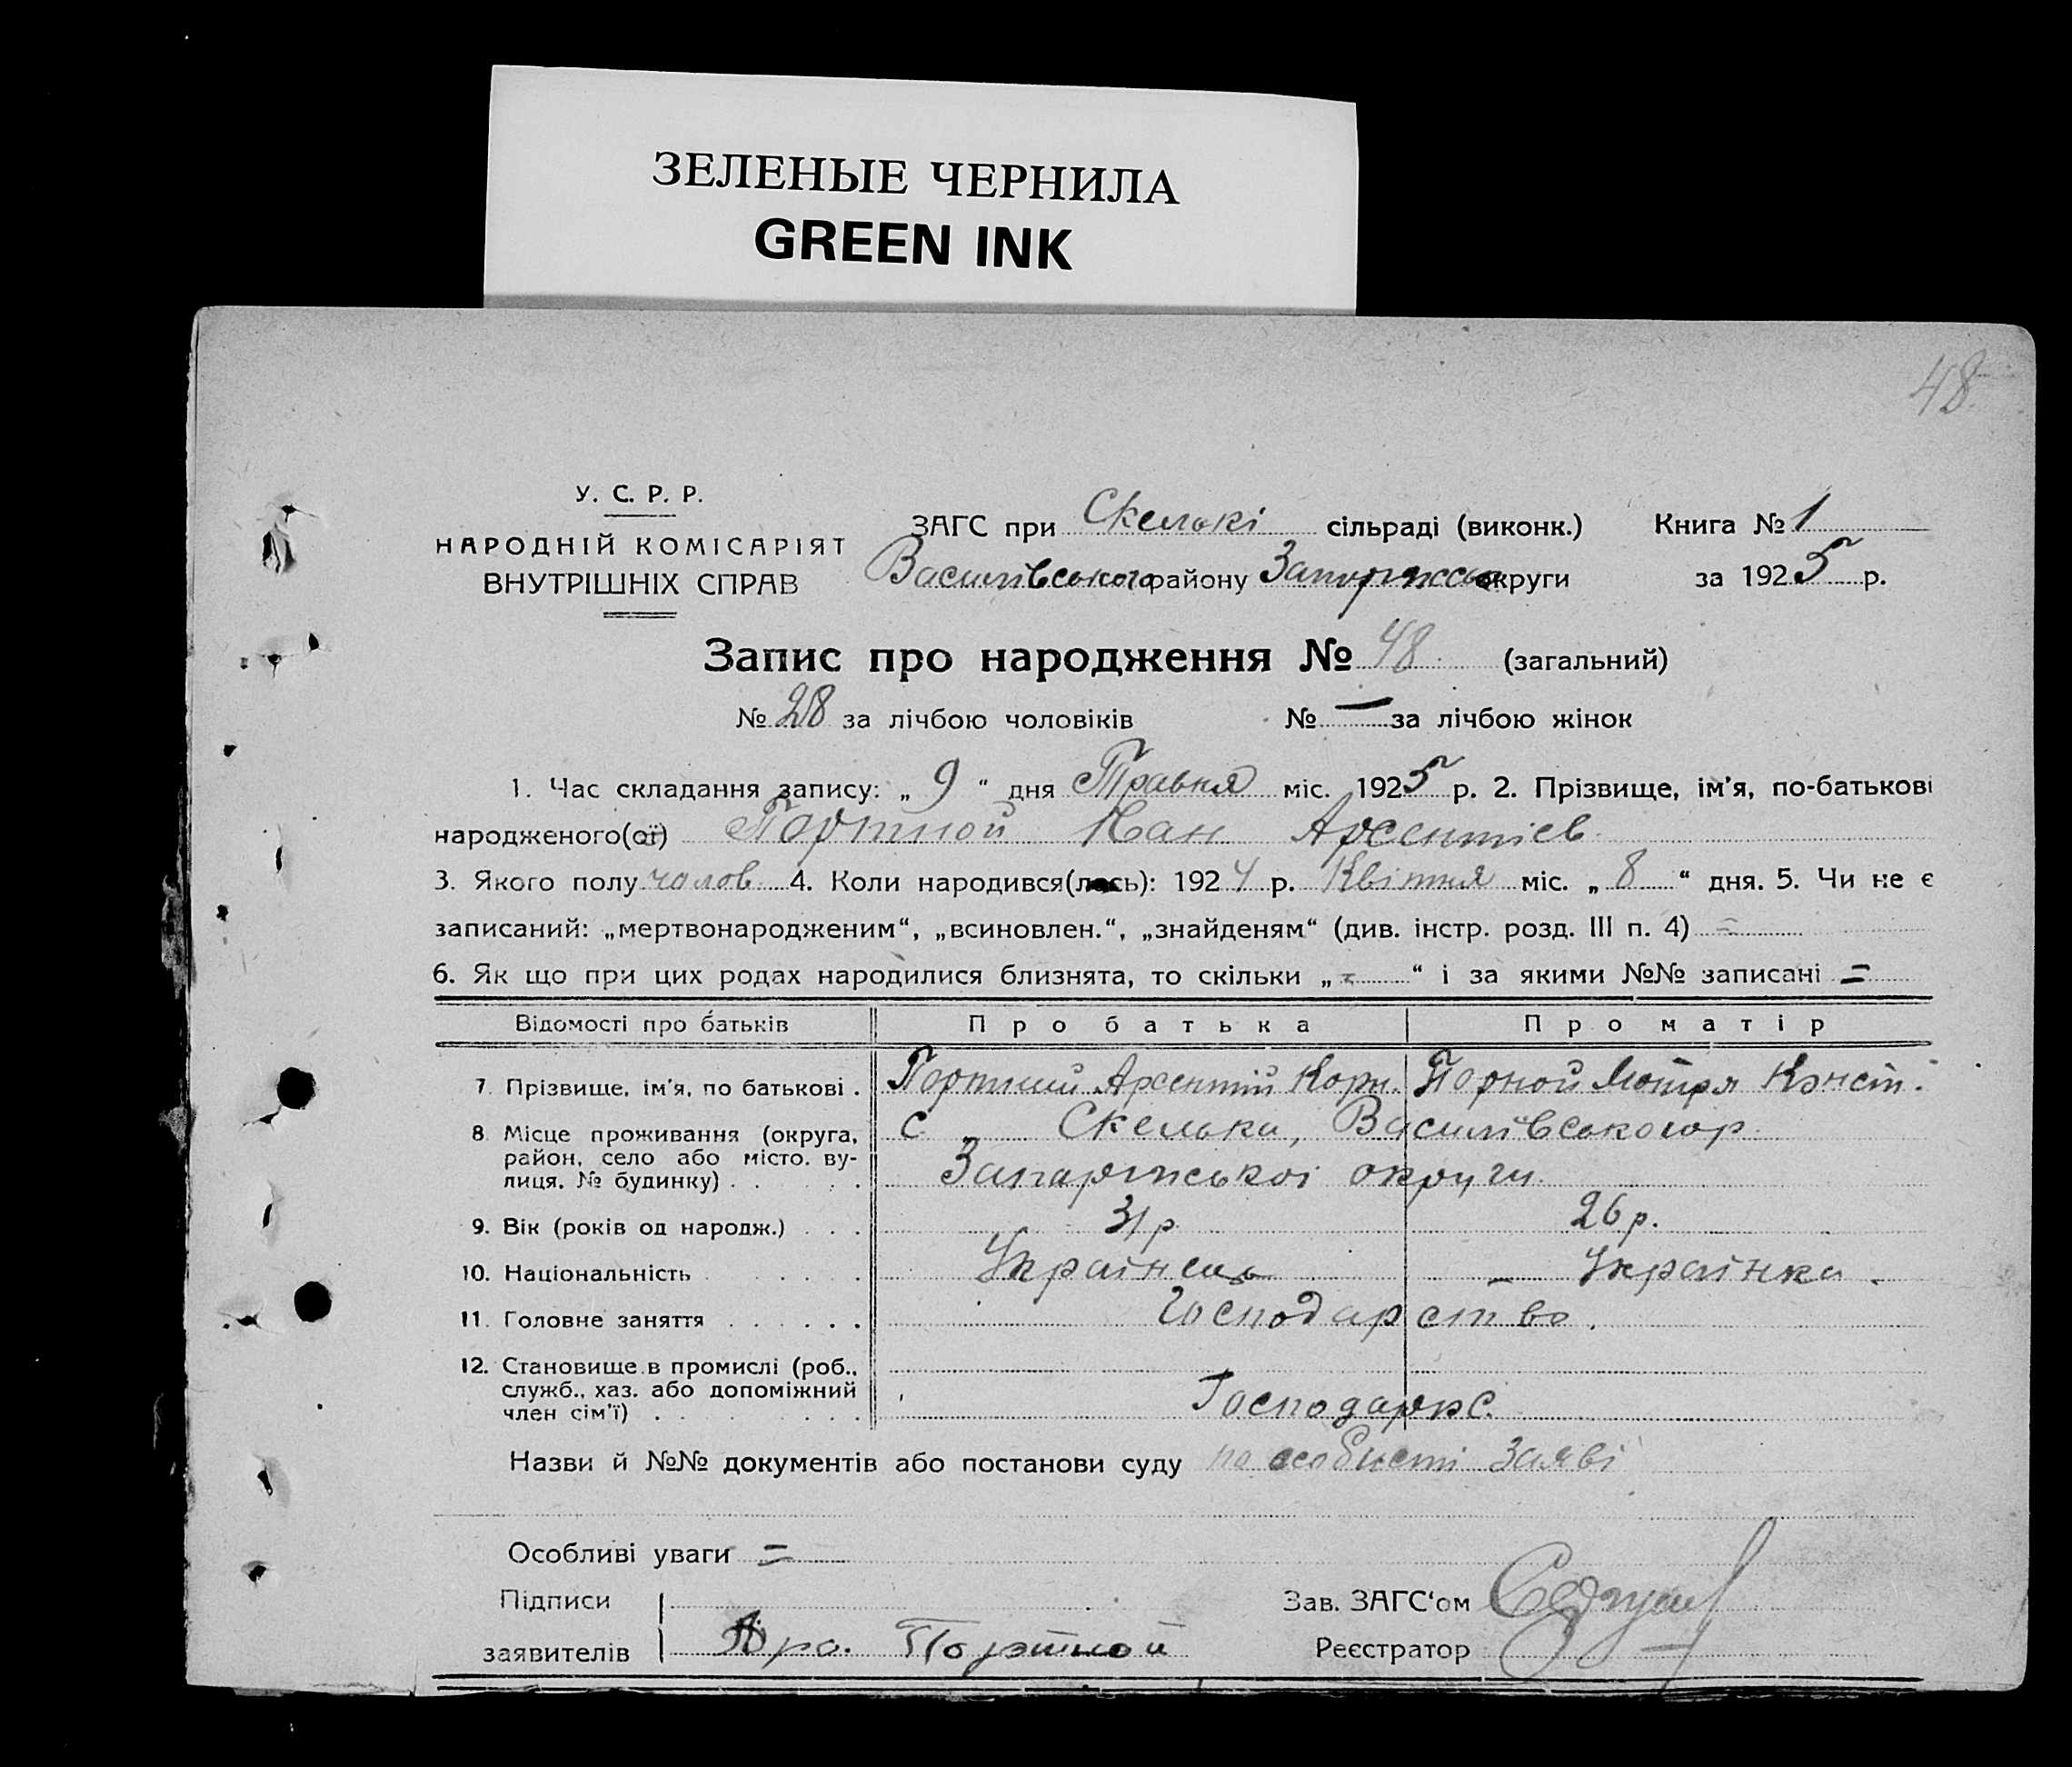 ЗЕЛЕНЫЕ ЧЕРНИЛА
GREEN INK
48
У. С. Р. Р.
НАРОДНІЙ КОМІСАРІЯТ
ВНУТРІШНІХ СПРАВ
ЗАГС при Скелькі сільраді (виконк.) Книга № 1
Василівського району Запоріжськ округи за 1925 р.
Запис про народження № 48 (загальний)
№ 28 за лічбою чоловіків № — за лічбою жінок
1. Час складання запису: „ 9 “ дня Травня міс. 1925 р. 2. Прізвище, ім'я, по-батькові
народженого(ої) Портной Іван Арсентієв
3. Якого полу чолов 4. Коли народився(лась): 1924 р. Квітня міс. „ 8 “ дня. 5. Чи не є
записаний: „мертвонародженим“, „всиновлен.“, „знайденям“ (див. інстр. розд. III п. 4) =
6. Як що при цих родах народилися близнята, то скільки „ = “ і за якими №№ записані =
Відомості про батьків Про батька Про матір
7. Прізвище, ім'я, по батькові . Портний Арсентій Корн. Порной Мотря Конст.
8. Місце проживання (округа, район, село або місто, вулиця, № будинку) . . . с. Скельки, Василівського р.
Запоріжської округи.
9. Вік (років од народж.) . . . 31 р. 26 р.
10. Національність . . . . Українець — Українка.
11. Головне заняття . . . . . . Господарство.
12. Становище в промислі (роб., служб., хаз. або допоміжний член сім'ї) . . . . . Господаркс.
Назви й №№ документів або постанови суду по особисті заяві
Особливі уваги =
Підписи
заявителів Ара. Портной
Зав. ЗАГС'ом
Реєстратор